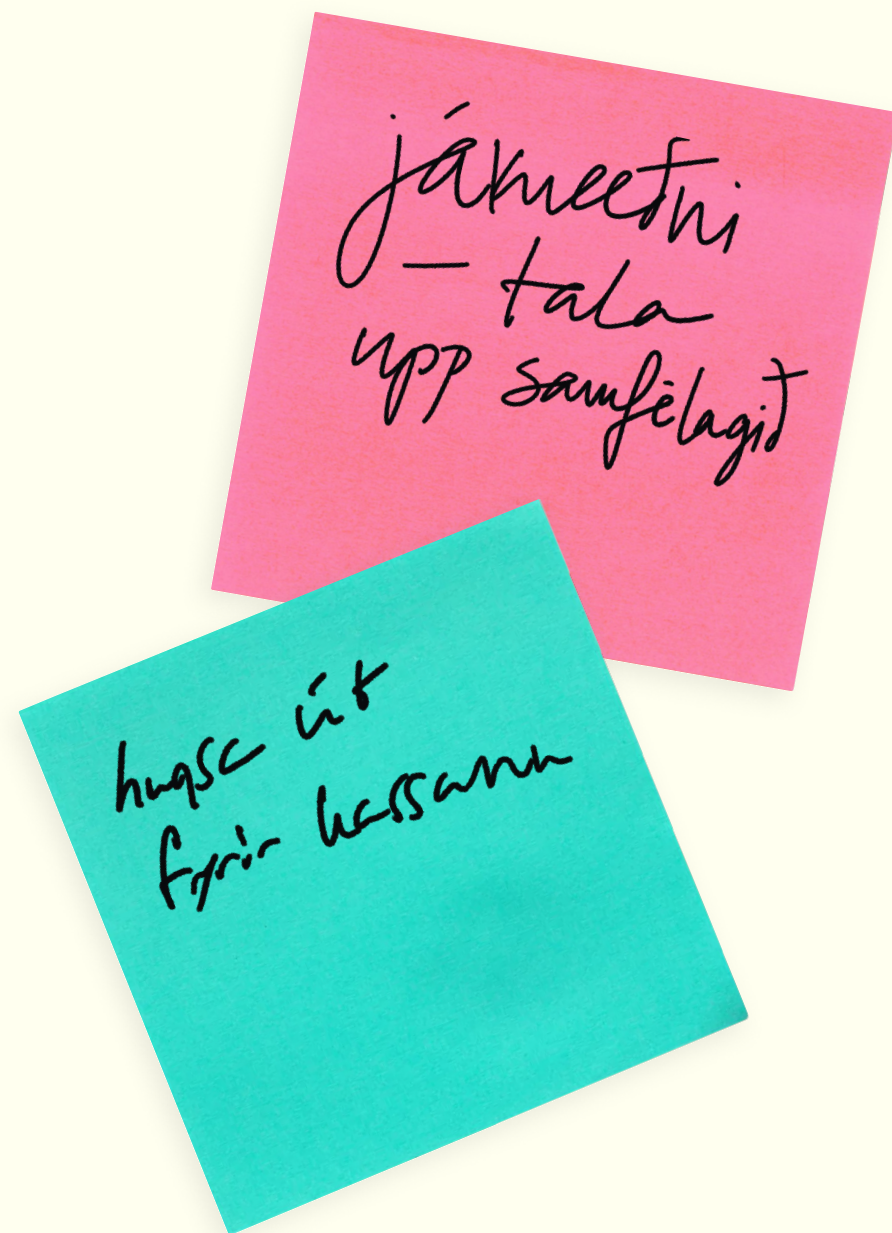 jákvæðni
– tala
upp samfélagið
hugsa út
fyrir kassann